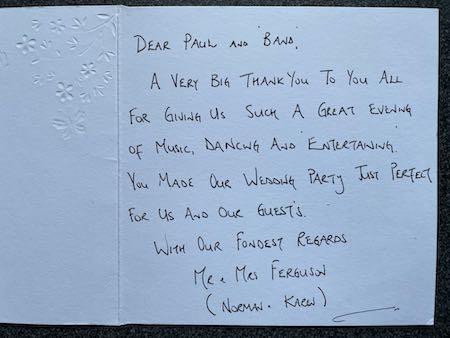 DEAR PAUL AND 'BAND',
A VERY BIG THANKYOU TO YOU ALL
FOR GIVING US SUCH A GREAT EVENING
OF MUSIC, DANCING AND ENTERTAINING.
YOU MADE OUR WEDDING PARTY JUST PERFECT
FOR US AND OUR GUEST'S.
WITH OUR FONDEST REGARDS
MR + MRS FERGUSON
(NORMAN + KAREN)